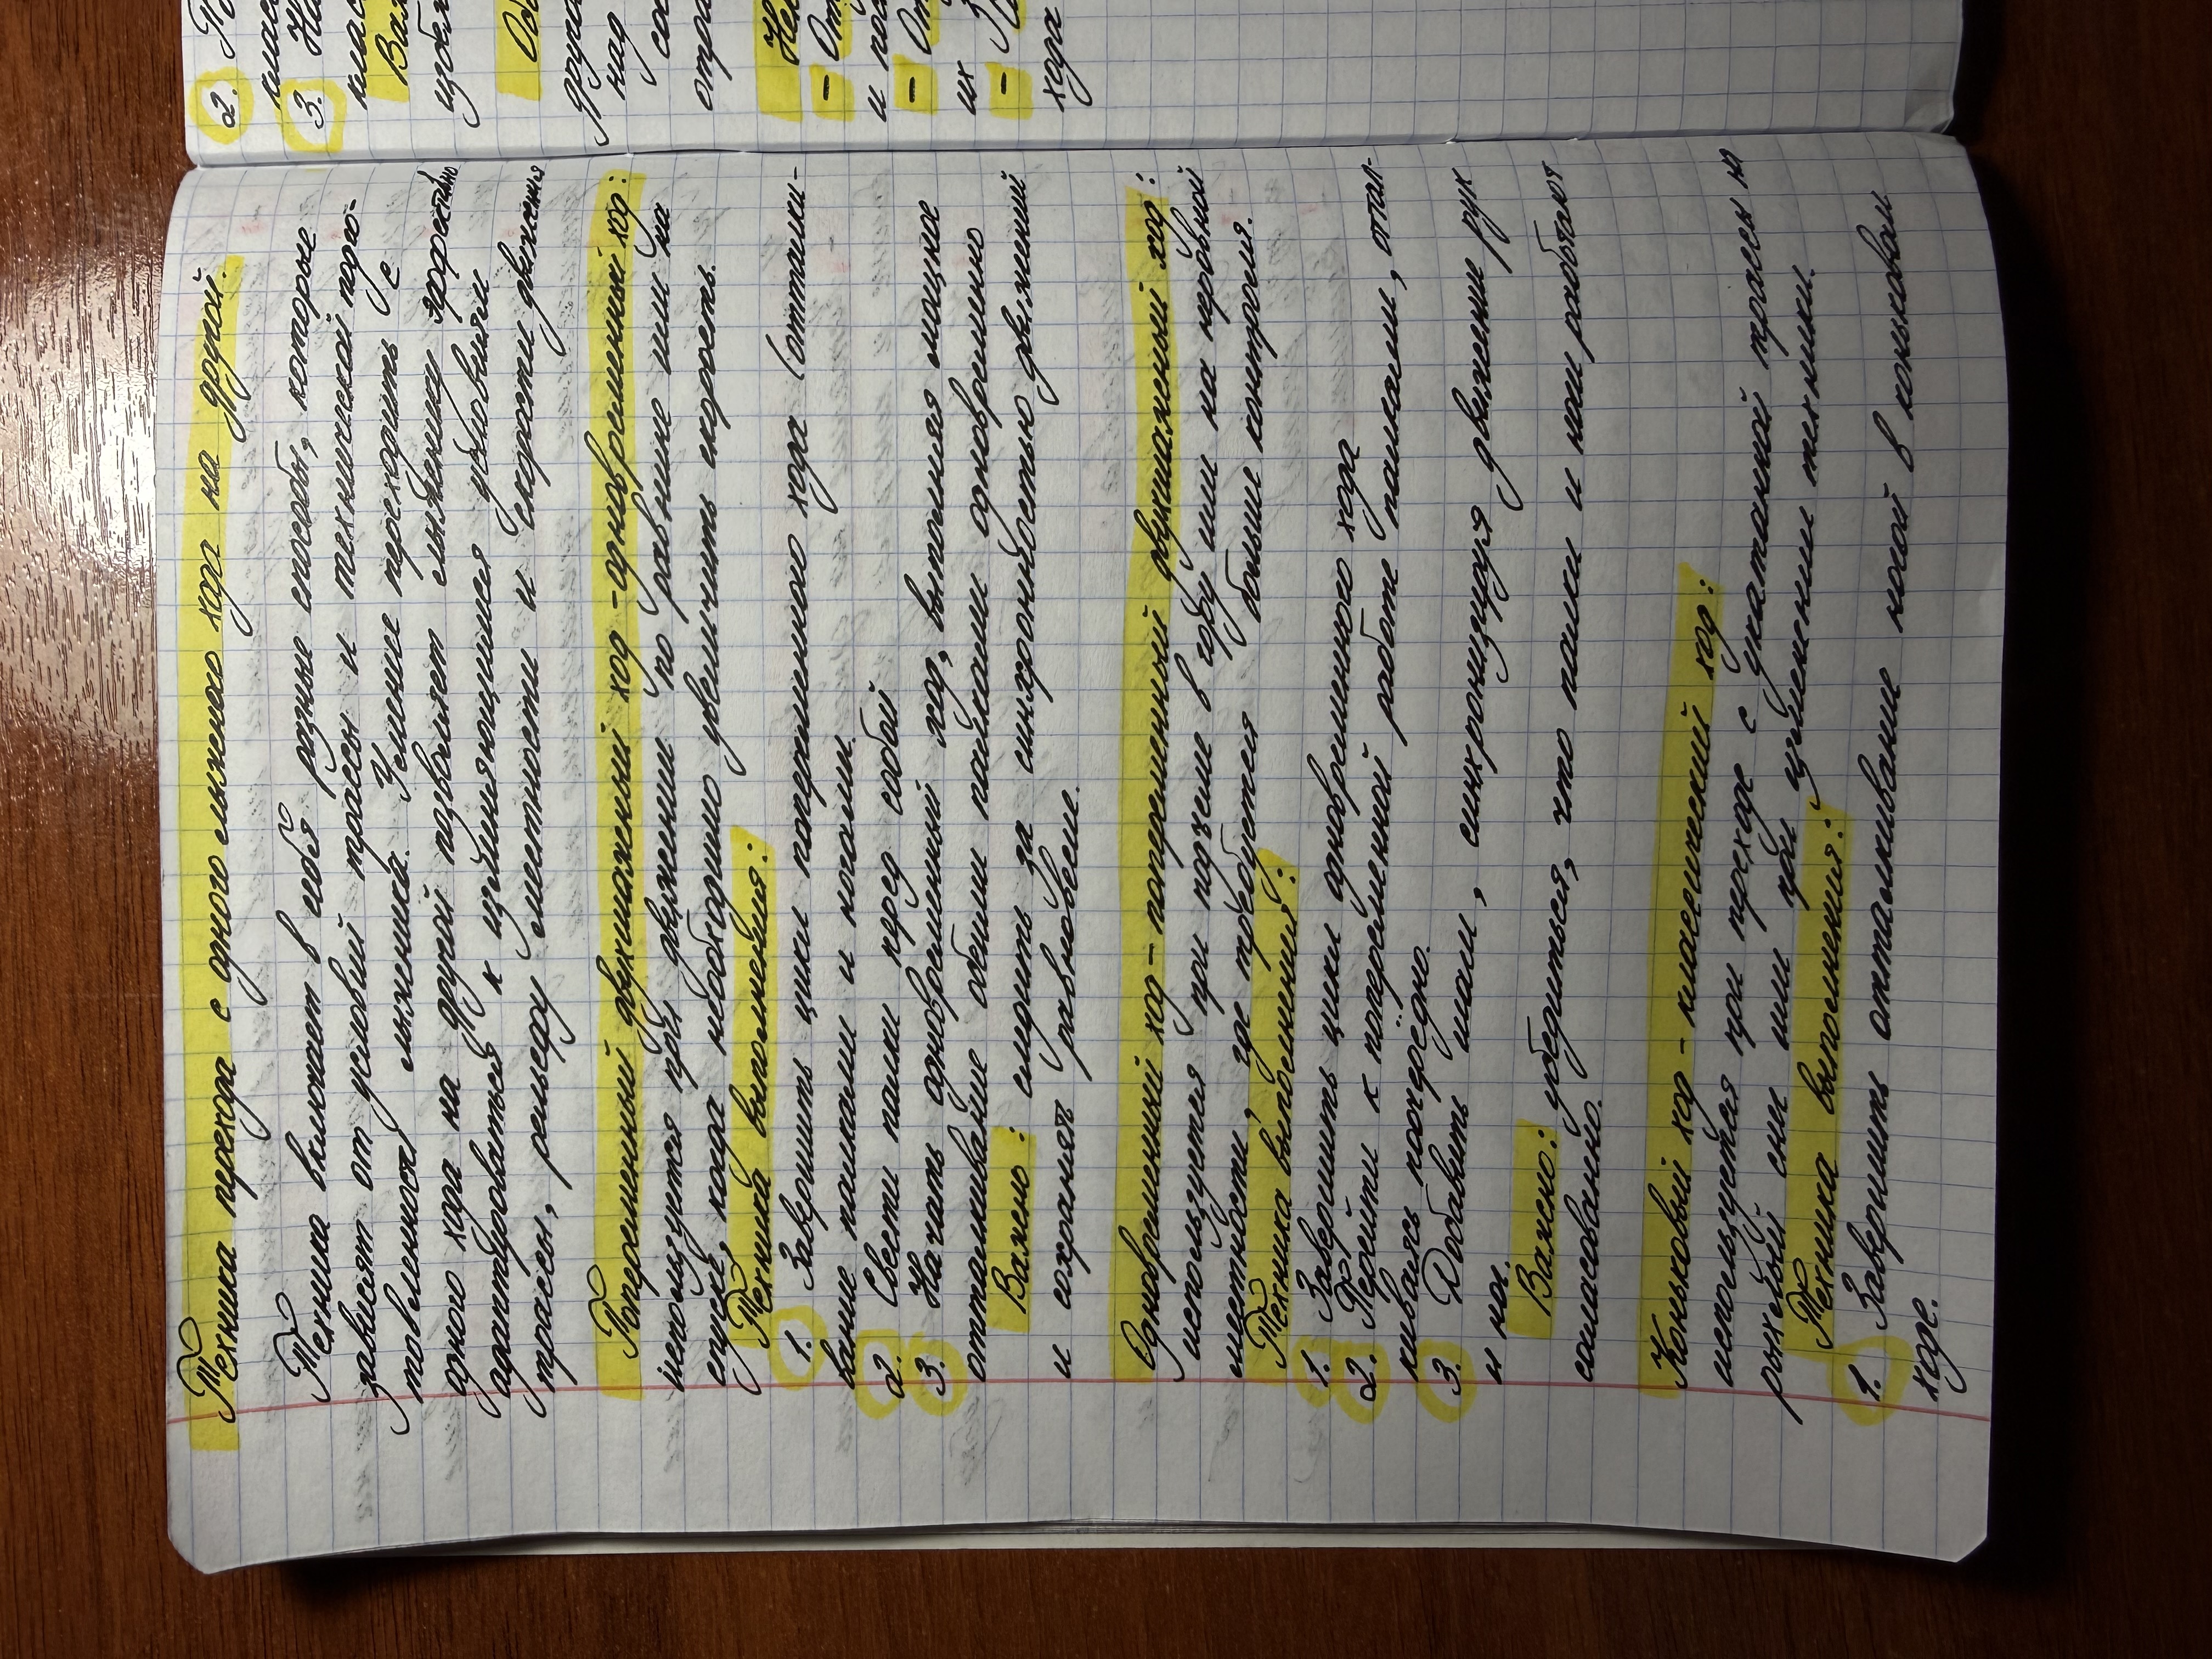 Техника перехода с одного лыжного хода на другой.
Техника включает в себя разные способы, которые
зависят от условий трассы и технической подго-
товленности лыжника. Умение переходить с
одного хода на другой позволяет лыжнику эффективно
адаптироваться к изменяющимся условиям
трассы, рельефу местности и скорости движения
Попеременный двухшажный ход - одновременный ход:
используется при движении по равнине или на
спуске, когда необходимо увеличить скорость.
Техника выполнения:
1. Завершить цикл попеременного хода (отталки-
вание палками и ногами.
2. Свести палки перед собой
3. Начать одновременный ход, выполняя мощное
отталкивание обеими палками одновременно
Важно: следить за синхронностью движений
и сохранять равновесие.
Одновременный ход - попеременный двухшажный ход:
используется при подъеме в гору или на неровной
местности, где требуется больше контроля.
Техника выполнения:
1. Завершить цикл одновременного хода
2. Перейти к попеременной работе палками, оттал-
киваясь поочерёдно.
3. Добавить шаги, синхронизируя движение рук
и ног.
Важно: убедиться, что палки и ноги работают
согласованно.
Коньковый ход - классический ход:
используется при переходе с укатанной трассы на
рыхлый снег или при изменении техники.
Техника выполнения:
1. Завершить отталкивание ногой в коньковом
ходе.
2.
3.